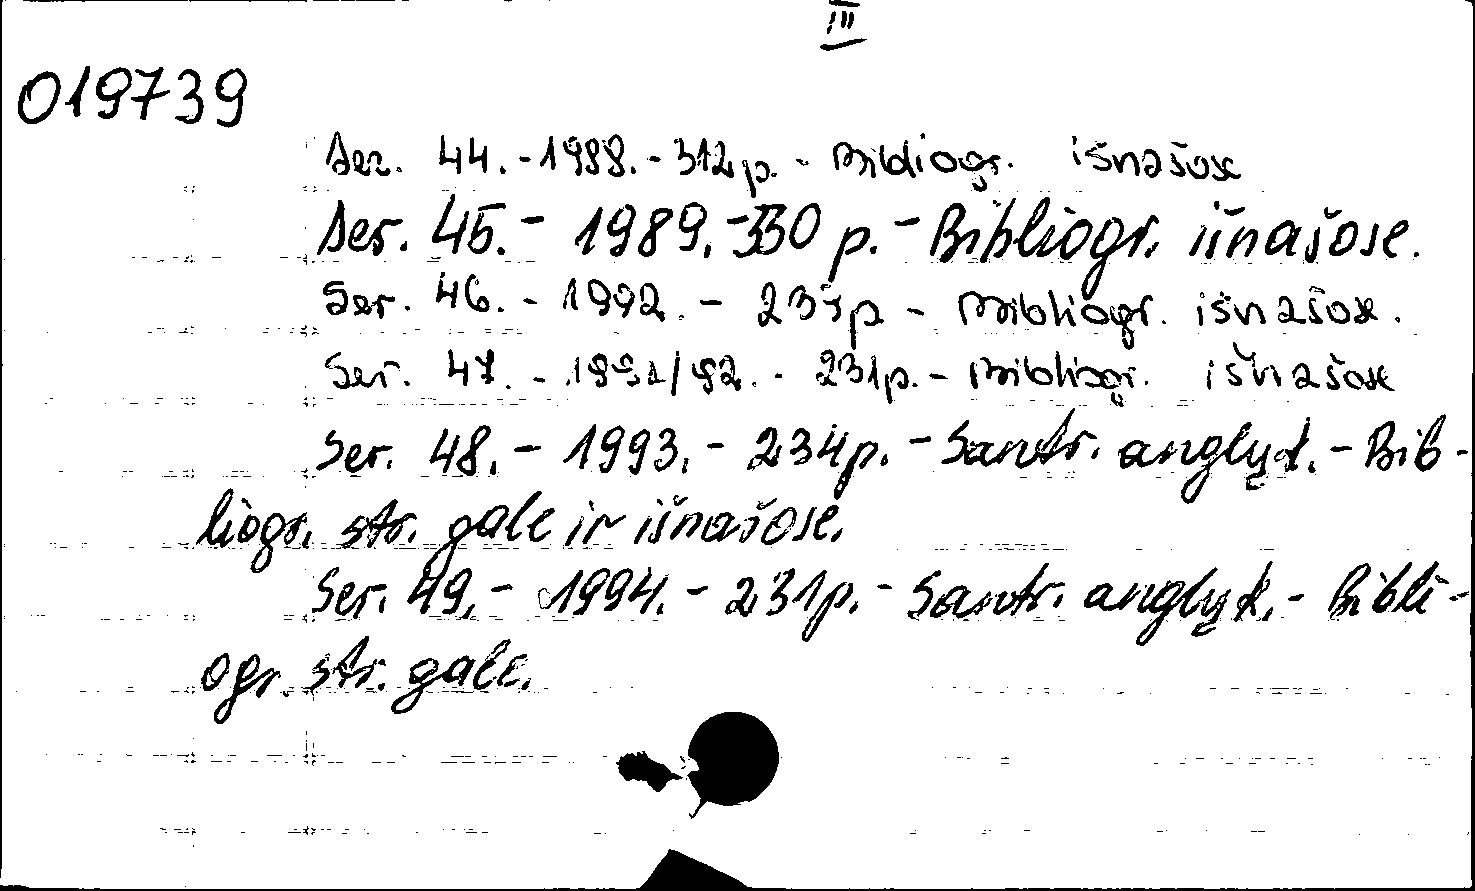 III
019739
Ser. 44. - 1988. - 312 p. - Bibliogr. išnašose
Ser. 45. - 1989. - 330 p. - Bibliogr. išnašose.
Ser. 46. - 1992. - 237 p - Bibliogr. išnašose.
Ser. 47. - 1991/92. - 231 p. - Bibliogr. išnašose
Ser. 48. - 1993. - 234 p. - Santr. anglų k. - Bib-
liogr. str. gale ir išnašose.
Ser. 49. - 1994. - 231 p. - Santr. anglų k. - Bibli-
ogr. str. gale.